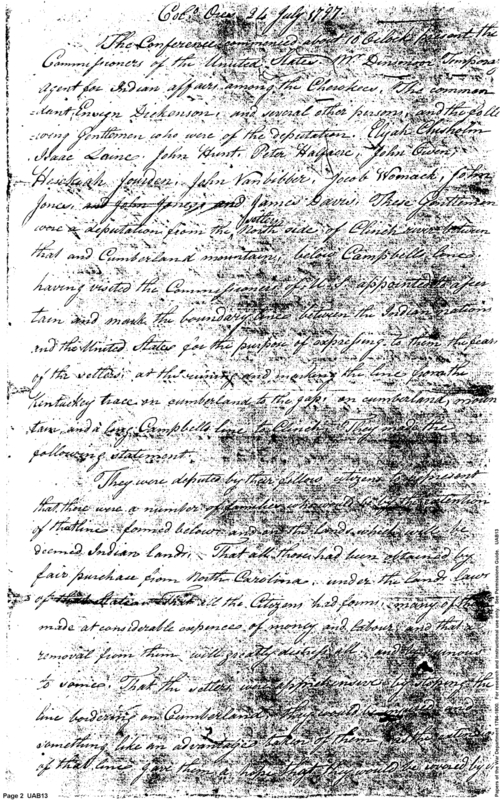 Colo. Ore 24 July 1797.
The Conference commenced about 10 Oclock present the
Commissioners of the United States Mr Dinsmoor Temporary
agent for Indian affairs among the Cherokees, The common
dant Ensign Dickenson, and several other persons, and the follo
wing Gentlemen who were of the deputation, Elijah Chisholm
Isaac Laine, John Hunt, Peter John Owen,
Hezekiah John Vanbibber, Jacob Womack, John
Jones, and John Jones and James Davis. These Gentlemen
were a deputation from the settlers North side of Clinch river between
that and Cumberland mountain, below Campbells line
having visited the Commissioners of U. S. appointed to ascer
tain and mark the boundary line between the Indian nations
and the United States for the purpose of expressing to them the fears
of the settlers, at the runing and marking the line from the
Kentuckey trace on cumberland to the gap, on cumberland moun
tain, and a long Campbells line to Clinch They made the
following statement.
They were deputed by their fellow citizens to represent
that there were a number of families who
of that line formed below and on the lands which will be
deemed Indian lands. That all those had been obtained by
fair purchase from North Carolina under the land laws
of that State that all the Citizens had farms, many of them
made at considerable expences of money and labour and that
removal from them will greatly distress all, and be ruinous
to some. That the settlers were apprehensive by
line bordering on Cumberland they
something like an advantage taken of them
of that line gave them a hope that they would be covered by
Page 2 UAB13
Papers of the War Department 1784-1800. For research and instructional use only. See Permissions Guide. UAB13